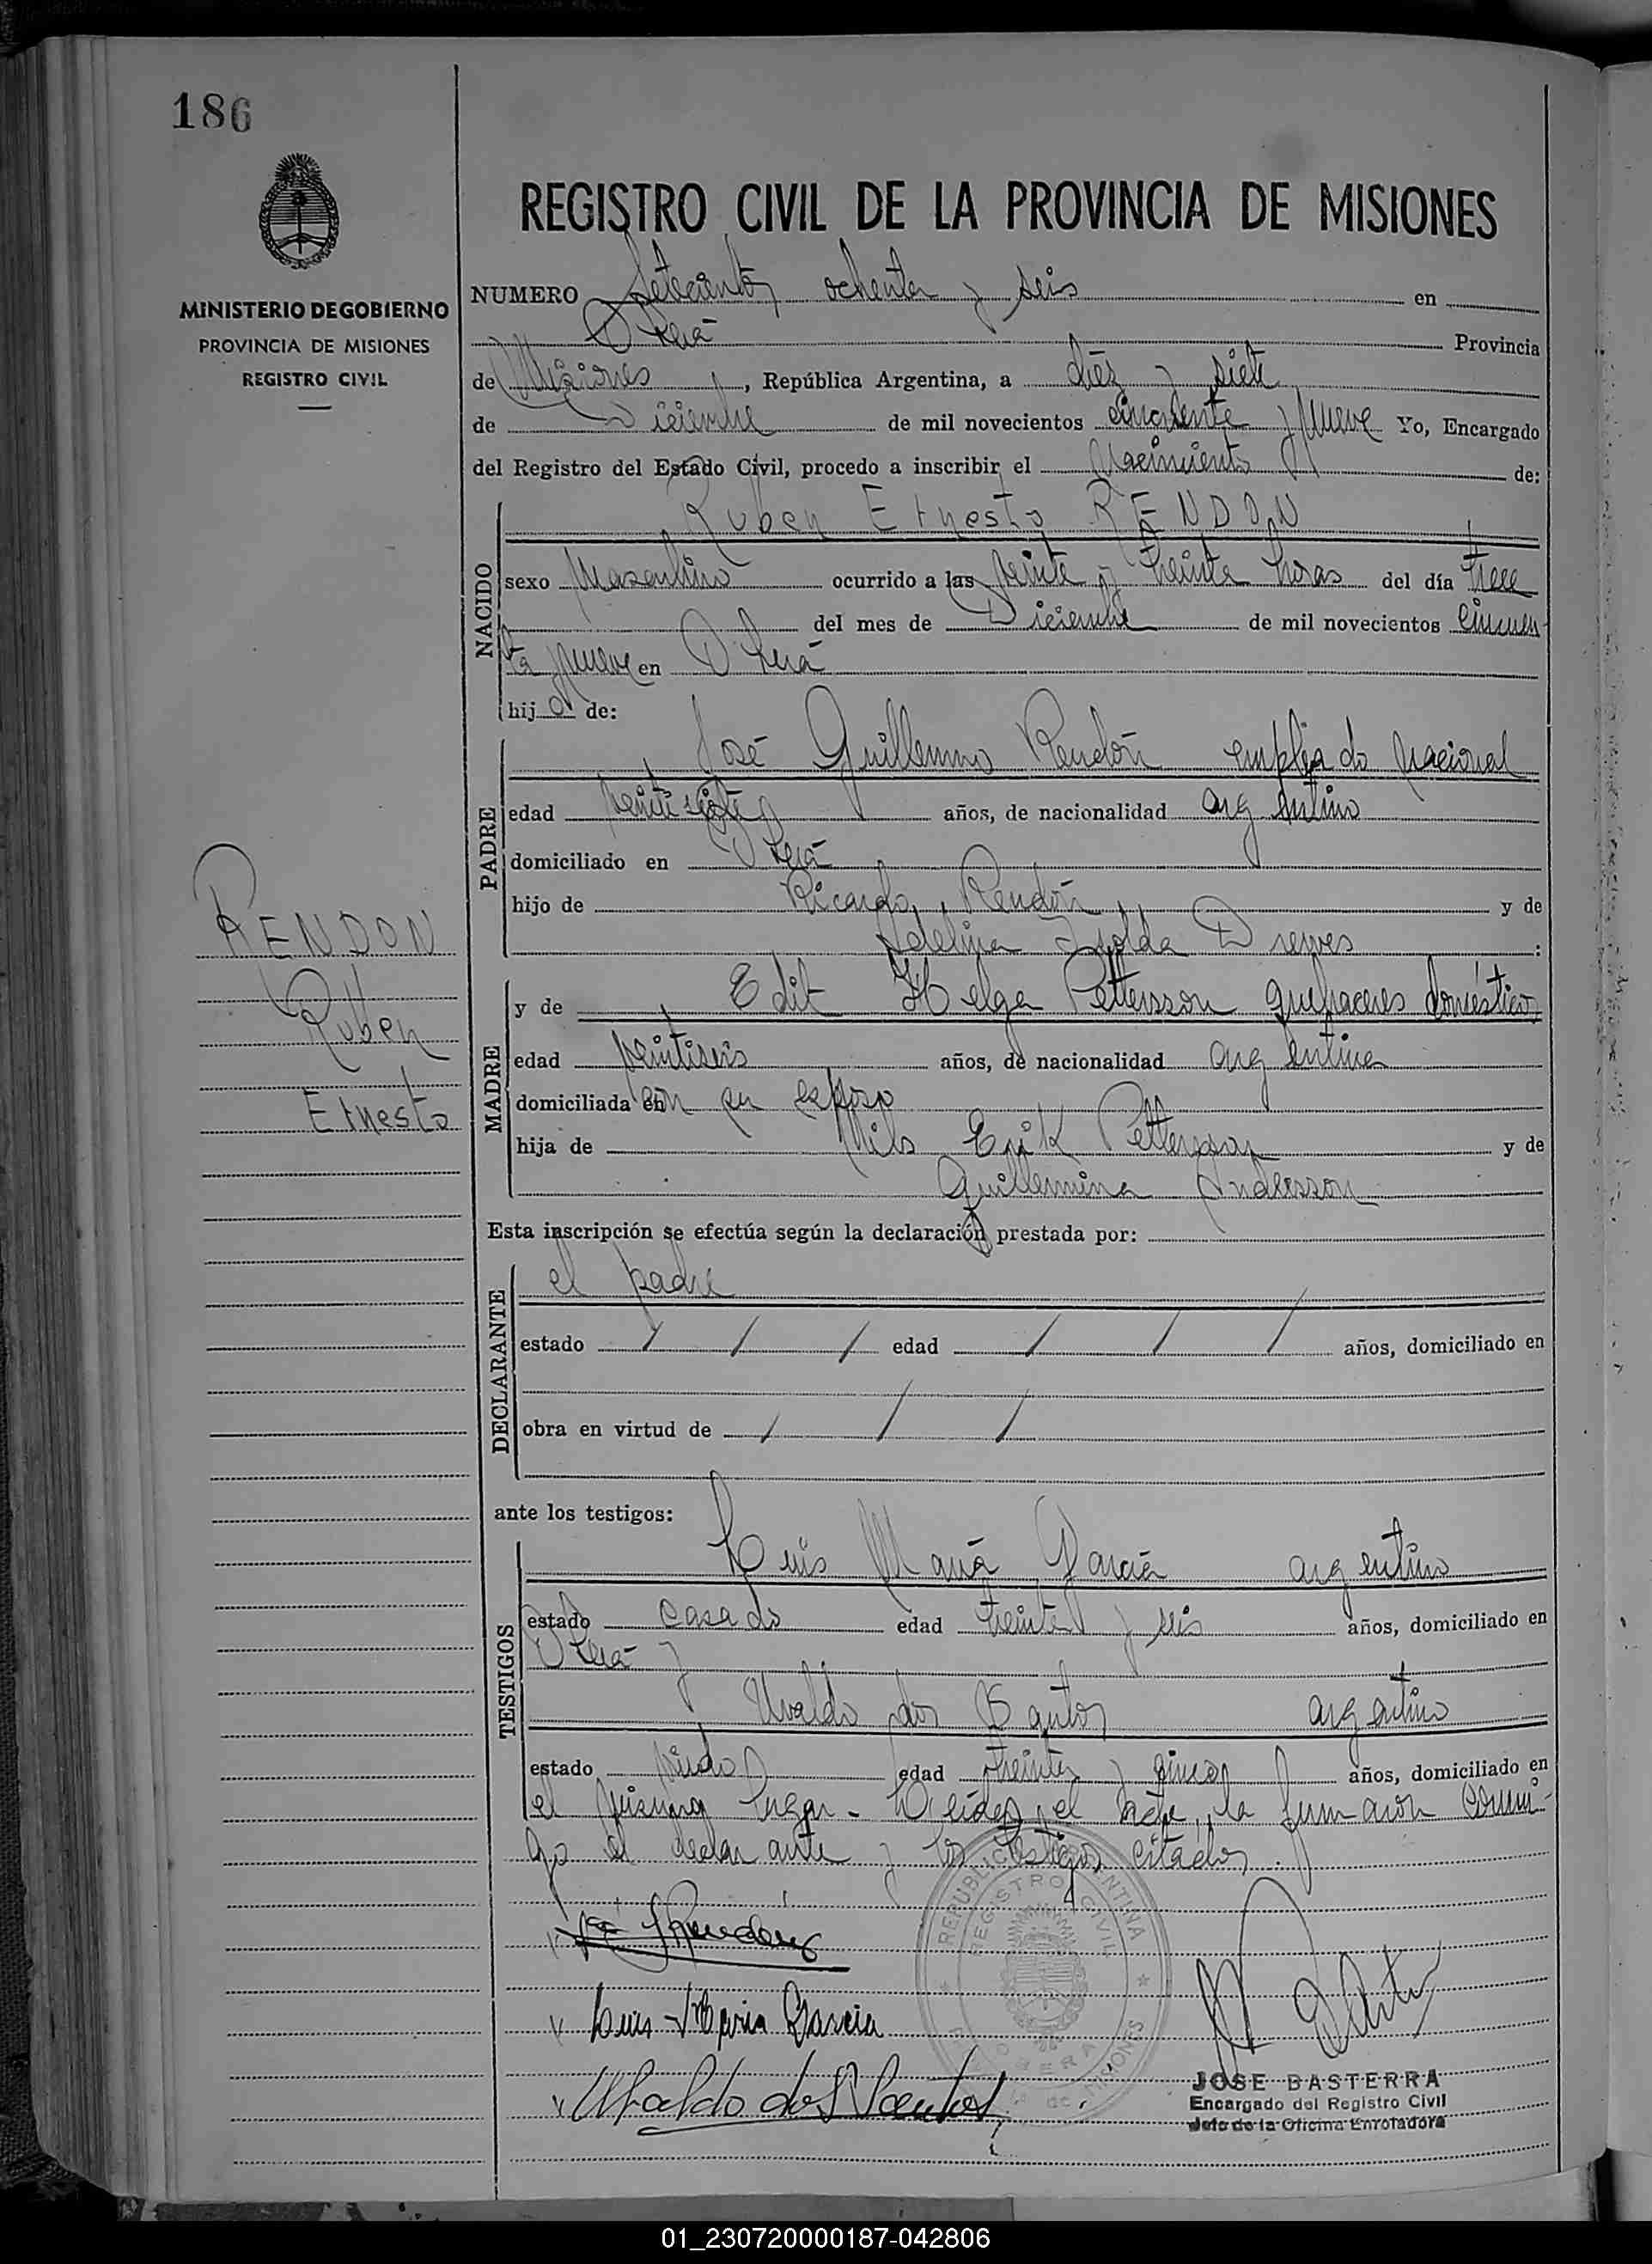 186
MINISTERIO DE GOBIERNO
PROVINCIA DE MISIONES
REGISTRO CIVIL
REGISTRO CIVIL DE LA PROVINCIA DE MISIONES
NUMERO Setecientos ochenta y seis en
Oberá Provincia
de Misiones, República Argentina, a diez y siete
de Diciembre de mil novecientos cincuenta y nueve Yo, Encargado
del Registro del Estado Civil, procedo a inscribir el Nacimiento de:
Ruben Ernesto RENDON
NACIDO
sexo Masculino ocurrido a las veinte y treinta horas del día trece
del mes de Diciembre de mil novecientos cincuen-
ta y nueve en Oberá
hijo de:
PADRE
José Guillermo Rendón empleado Nacional
edad veintisiete años, de nacionalidad argentino
domiciliado en Oberá
hijo de Ricardo Rendón y de
Adelina Isolda Drewes:
MADRE
y de Edit Helga Pettersson quehaceres domésticos
edad veintiseis años, de nacionalidad argentina
domiciliada en con su esposo
hija de Nils Erik Pettersson y de
Guillermina Andersson
RENDON
Ruben
Ernesto
Esta inscripción se efectúa según la declaración prestada por:
DECLARANTE
el padre
estado / / / edad / / / años, domiciliado en
obra en virtud de / / /
ante los testigos:
TESTIGOS
Luis María García argentino
estado casado edad treinta y seis años, domiciliado en
Oberá y
Ubaldo dos Santos argentino
estado viudo edad treinta y cinco años, domiciliado en
el mismo lugar - Leída el acta, la firmaron conmi-
go el declarante y los testigos citados.
José G Rendón
Luis María García
Ubaldo dos Santos
REPUBLICA ARGENTINA
REGISTRO CIVIL
OBERA
MISIONES
JOSE BASTERRA
Encargado del Registro Civil
Jefe de la Oficina Enroladora
01_230720000187-042806